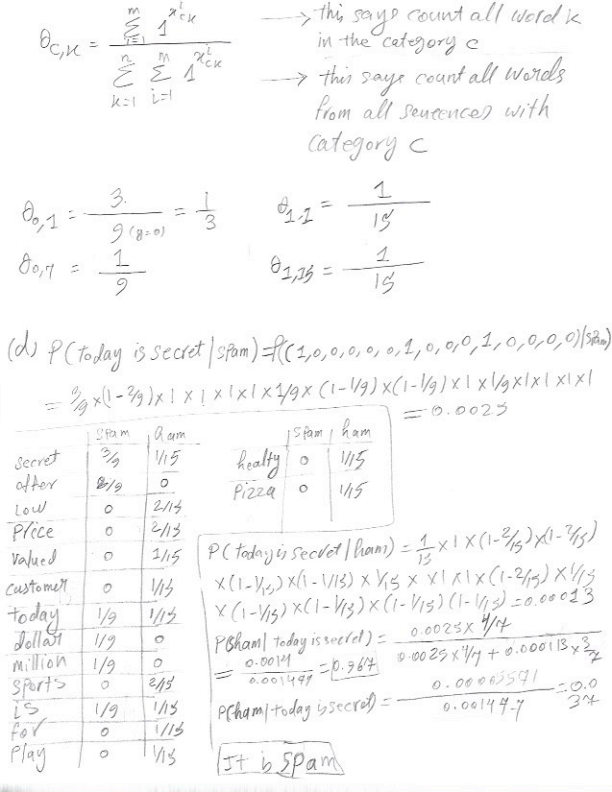 θ_{c,k} = \frac{\sum_{i=1}^{m} 1^{x^i_{ck}}}{\sum_{k=1}^{n} \sum_{i=1}^{m} 1^{x^i_{ck}}}
→ this says count all word k
in the category c
→ this says count all words
from all sentences with
category c
θ_{0,1} = 3/9 (y=0) = 1/3
θ_{1,1} = 1/15
θ_{0,7} = 1/9
θ_{1,15} = 1/15
(d) P(today is secret | spam) = P((1,0,0,0,0,0,1,0,0,0,1,0,0,0,0)|spam)
= 3/9 x (1-2/9) x 1 x 1 x 1 x 1 x 1/9 x (1-1/9) x (1-1/9) x 1 x 1/9 x 1 x 1 x 1 x 1
= 0.0025
spam ham
secret 3/9 1/15
offer 2/9 0
Low 0 2/15
Price 0 2/15
Valued 0 1/15
customer 0 1/15
today 1/9 1/15
dollar 1/9 0
million 1/9 0
sports 0 2/15
is 1/9 1/15
for 0 1/15
Play 0 1/15
spam ham
healty 0 1/15
Pizza 0 1/15
P(today is secret | ham) = 1/15 x 1 x (1-2/15) x (1-2/15)
x (1-1/15) x (1-1/15) x 1/15 x x 1 x 1 x (1-2/15) x 1/15
x (1-1/15) x (1-1/15) x (1-1/15) (1-1/15) = 0.00013
P( ham| today is secret) = \frac{0.0025 x 4/7}{0.0025 x 4/7 + 0.00013 x 3/7}
= \frac{0.0014}{0.001497} = 0.967
P(ham| today is secret) = \frac{}{0.001497} = 0.0
37
It is spam